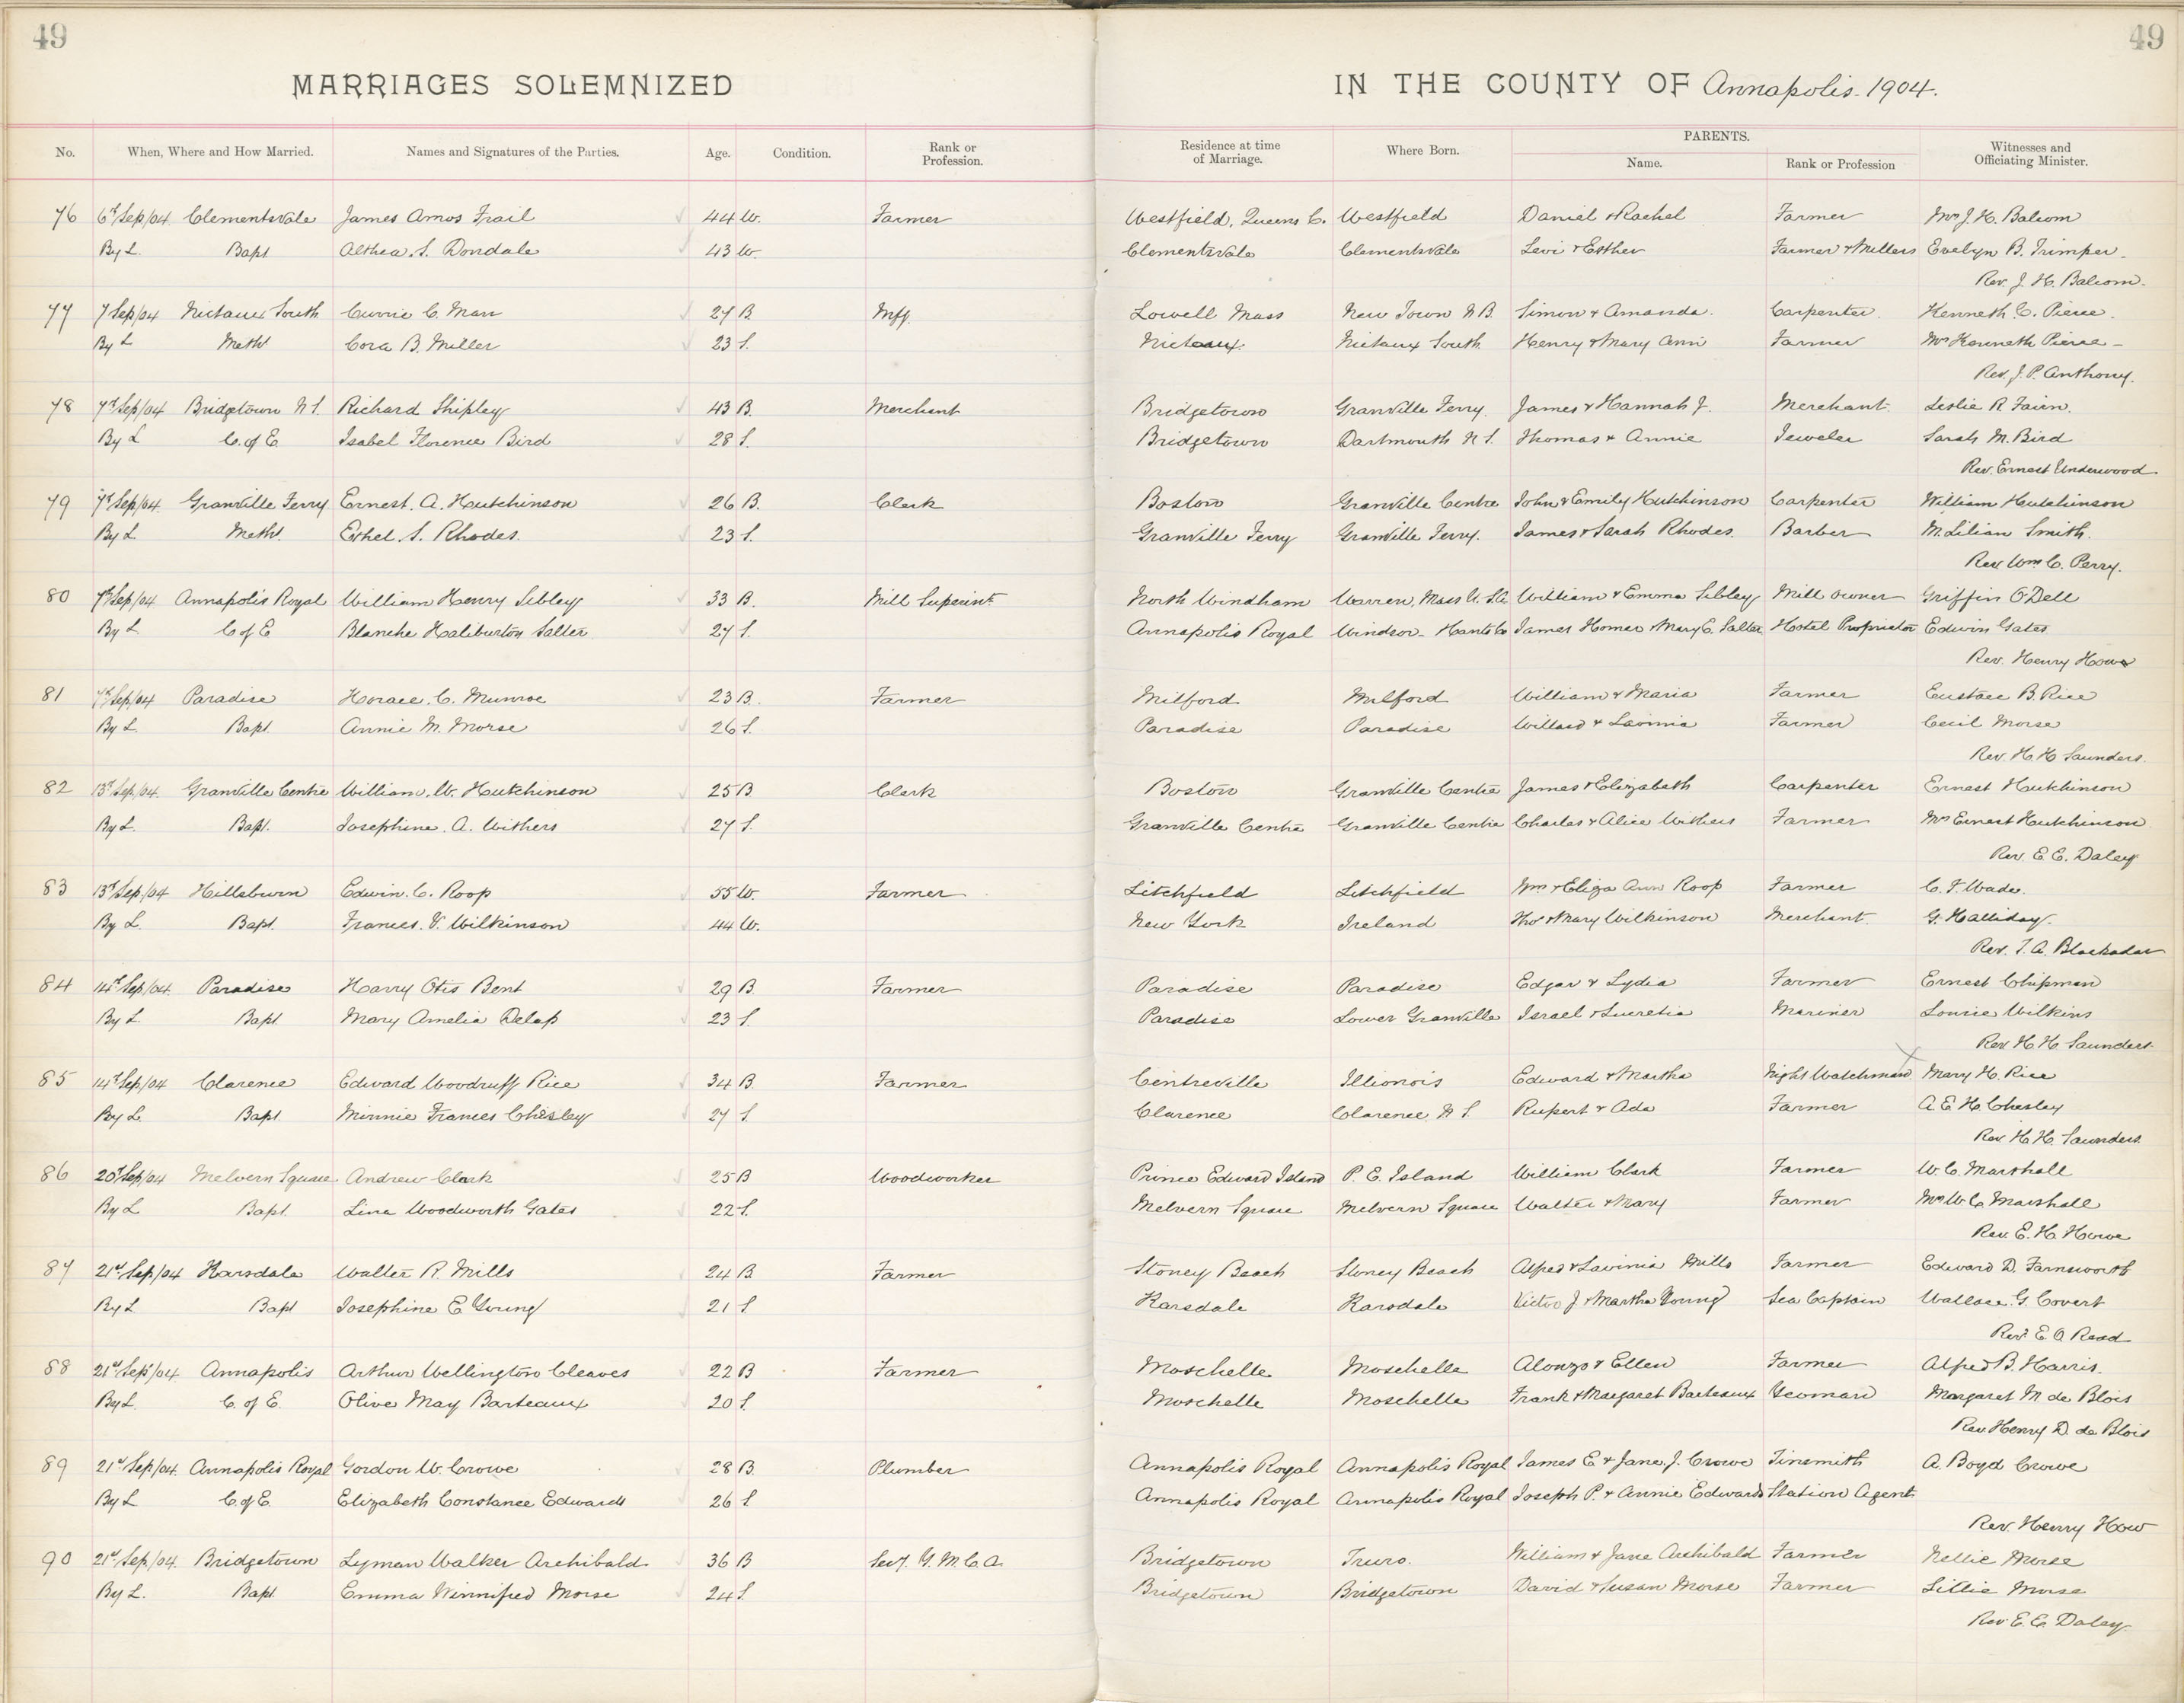 49 49
MARRIAGES SOLEMNIZED IN THE COUNTY OF Annapolis. 1904.
No. When, Where and How Married. Names and Signatures of the Parties. Age. Condition. Rank or Profession. Residence at time of Marriage. Where Born. PARENTS. Name. Rank or Profession Witnesses and Officiating Minister.
76 6th Sep/04. Clementsvale James Amos Frail 44 W. Farmer Westfield, Queens C. Westfield Daniel & Rachel Farmer Mrs J. H. Balcom
By L. Bapt Althea. S. Dondale 43 W. Clementsvale Clementsvale Levi & Esther Farmer & Millers Evelyn B. Trimper.
Rev. J. H. Balcom.
77 7 Sep/04 Nictaux South Currie C. Marr 27 B. Mfg. Lowell Mass New Town N.B. Simon & Amanda. Carpenter. Kenneth C. Pierce.
By L Meth Cora B. Miller 23 S. Nictaux. Nictaux South Henry & Mary Ann Farmer Mrs Kenneth Pierce
Rev. J. P. Anthony.
78 7th Sep/04 Bridgetown N.S. Richard Shipley 43 B. Merchant Bridgetown Granville Ferry. James & Hannah J. Merchant Leslie R Fairn.
By L C. of E. Isabel Florence Bird 28 S. Bridgetown Dartmouth N.S. Thomas & Annie Jeweler Sarah M. Bird
Rev. Ernest Underwood.
79 7th Sep/04. Granville Ferry Ernest. A. Hutchinson 26 B. Clerk Boston Granville Centre John & Emily Hutchinson Carpenter William Hutchinson
By L. Meth. Ethel. S. Rhodes. 23 S. Granville Ferry Granville Ferry. James & Sarah Rhodes. Barber M. Lilian Smith.
Rev. Wm C. Perry.
80 7th Sep/04 Annapolis Royal William Henry Sibley 33 B. Mill Superint. North Windham Warren, Mass U.S.A William & Emma Sibley Mill owner Griffin O'Dell
By L. C of E Blanche Haliburton Salter 27 S. Annapolis Royal Windsor. Hants Co James Homer & Mary E. Salter Hotel Proprietor Edwin Gates
Rev. Henry How
81 7th Sep/04 Paradise Horace. C. Munroe 23 B. Farmer Milford Milford William & Maria Farmer Eustace B. Rice
By L Bapt. Annie M. Morse 26 S. Paradise Paradise Willard & Lavinia Farmer Cecil Morse
Rev. H. H. Saunders.
82 13th Sep/04. Granville Centre William. W. Hutchinson 25 B Clerk Boston Granville Centre James & Elizabeth Carpenter Ernest Hutchinson
By L. Bapt. Josephine. A. Withers 27 S. Granville Centre Granville Centre Charles & Alice Withers Farmer Mrs Ernest Hutchinson
Rev. E. E. Daley
83 13th Sep/04 Hillsburn Edwin. C. Roop 55 W. Farmer Litchfield Litchfield Wm & Eliza Ann Roop Farmer C. F. Wade.
By L. Bapt. Frances. V. Wilkinson 44 W. New York Ireland Thos & Mary Wilkinson Merchant G. Halliday.
Rev. T. A. Blackadar
84 14th Sep/04. Paradise Harry Otis Bent 29 B. Farmer Paradise Paradise Edgar & Lydia Farmer Ernest Chipman
By L Bapt Mary Amelia Delap 23 S. Paradise Lower Granville Israel & Lucretia Mariner Louise Wilkins
Rev H H Saunders.
85 14th Sep/04 Clarence Edward Woodruff Rice 34 B. Farmer Centreville Illionois Edward & Martha Night Watchman Mary H. Rice
By L. Bapt. Minnie Frances Chesley 27 S. Clarence Clarence N S. Rupert & Ada Farmer A. E. H. Chesley
Rev H. H. Saunders.
86 20th Sep/04 Melvern Square Andrew Clark 25 B Woodworker Prince Edward Island P. E. Island William Clark Farmer W. C. Marshall
By L Bapt. Lina Woodworth Gates 22 S. Melvern Square Melvern Square Walter & Mary Farmer Mrs W. C. Marshall
Rev. E. H. Howe
87 21st Sep/04 Karsdale Walter R. Mills 24 B. Farmer Stoney Beach Stoney Beach Alfred & Lavinia Mills Farmer Edward D. Farnsworth
By L Bapt Josephine E Young 21 S Karsdale Karsdale Victor J & Martha Young Sea Captain Wallace. G. Covert
Revd E. O Read
88 21st Sep/04 Annapolis Arthur Wellington Cleaves 22 B Farmer Moschelle Moschelle Alonzo & Ellen Farmer Alfred B. Harris.
By L. C. of E. Olive May Barteaux 20 S. Moschelle Moschelle Frank & Margaret Barteaux Yeoman Margaret M de Blois
Rev. Henry D. de Blois
89 21st Sep/04. Annapolis Royal Gordon W. Crowe 28 B. Plumber Annapolis Royal Annapolis Royal James E. & Jane. J. Crowe Tinsmith A. Boyd Crowe
By L C. of E. Elizabeth Constance Edwards 26 S Annapolis Royal Annapolis Royal Joseph P. & Annie Edwards Station Agent
Rev. Henry How
90 21st Sep/04. Bridgetown Lyman Walker Archibald. 36 B Secy. Y. M. C. A. Bridgetown Truro. William & Jane Archibald Farmer Nellie Morse
By L. Bapt. Emma Winnifred Morse 24 S. Bridgetown Bridgetown David & Susan Morse Farmer Lillie Morse
Rev. E. E. Daley